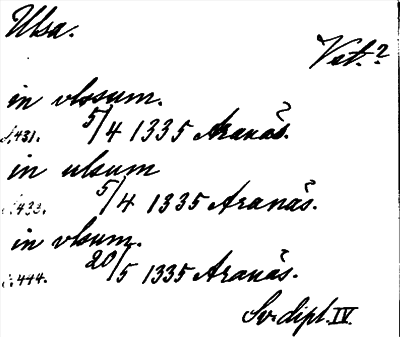 Ulsa.
Vet.?
in vlssum.
s. 431. 5/4 1335 Aranäs.
in ulsum
s. 433. 5/4 1335 Aranäs.
in vlsum.
s. 444. 20/5 1335 Aranäs.
Sv. dipl. IV.